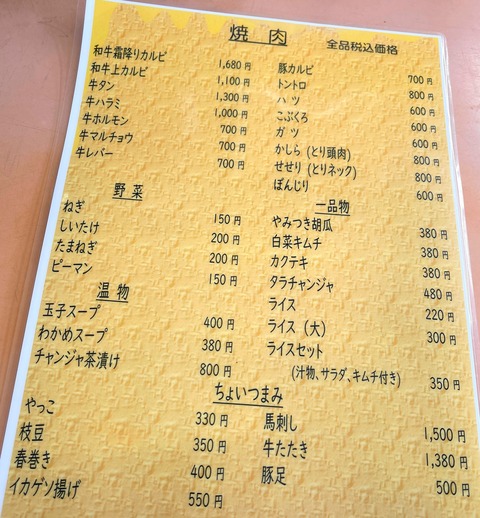 焼 肉
全品税込価格
和牛霜降りカルビ 1,680円
和牛上カルビ 1,100円
牛タン 1,300円
牛ハラミ 1,000円
牛ホルモン 700円
牛マルチョウ 700円
牛レバー 700円
豚カルビ 700円
トントロ 800円
ハツ 600円
こぶくろ 600円
ガツ 600円
かしら（とり頭肉） 800円
せせり（とりネック） 800円
ぼんじり 600円
野 菜
ねぎ 150円
しいたけ 200円
たまねぎ 200円
ピーマン 150円
一品物
やみつき胡瓜 380円
白菜キムチ 380円
カクテキ 380円
タラチャンジャ 480円
ライス 220円
ライス（大） 300円
ライスセット
（汁物、サラダ、キムチ付き） 350円
温 物
玉子スープ 400円
わかめスープ 380円
チャンジャ茶漬け 800円
ちょいつまみ
やっこ 330円
枝豆 350円
春巻き 400円
イカゲソ揚げ 550円
馬刺し 1,500円
牛たたき 1,380円
豚足 500円